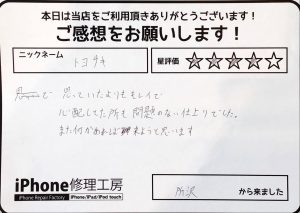 本日は当店をご利用頂きありがとうございます！
ご感想をお願いします！
ニックネーム
トヨサキ
星評価
思っていたよりもキレイで
心配してた所も問題のない仕上りでした。
また何かあれば来ようと思います
iPhone修理工房
iPhone Repair Factory
iPhone/iPad/iPod touch
所沢
から来ました